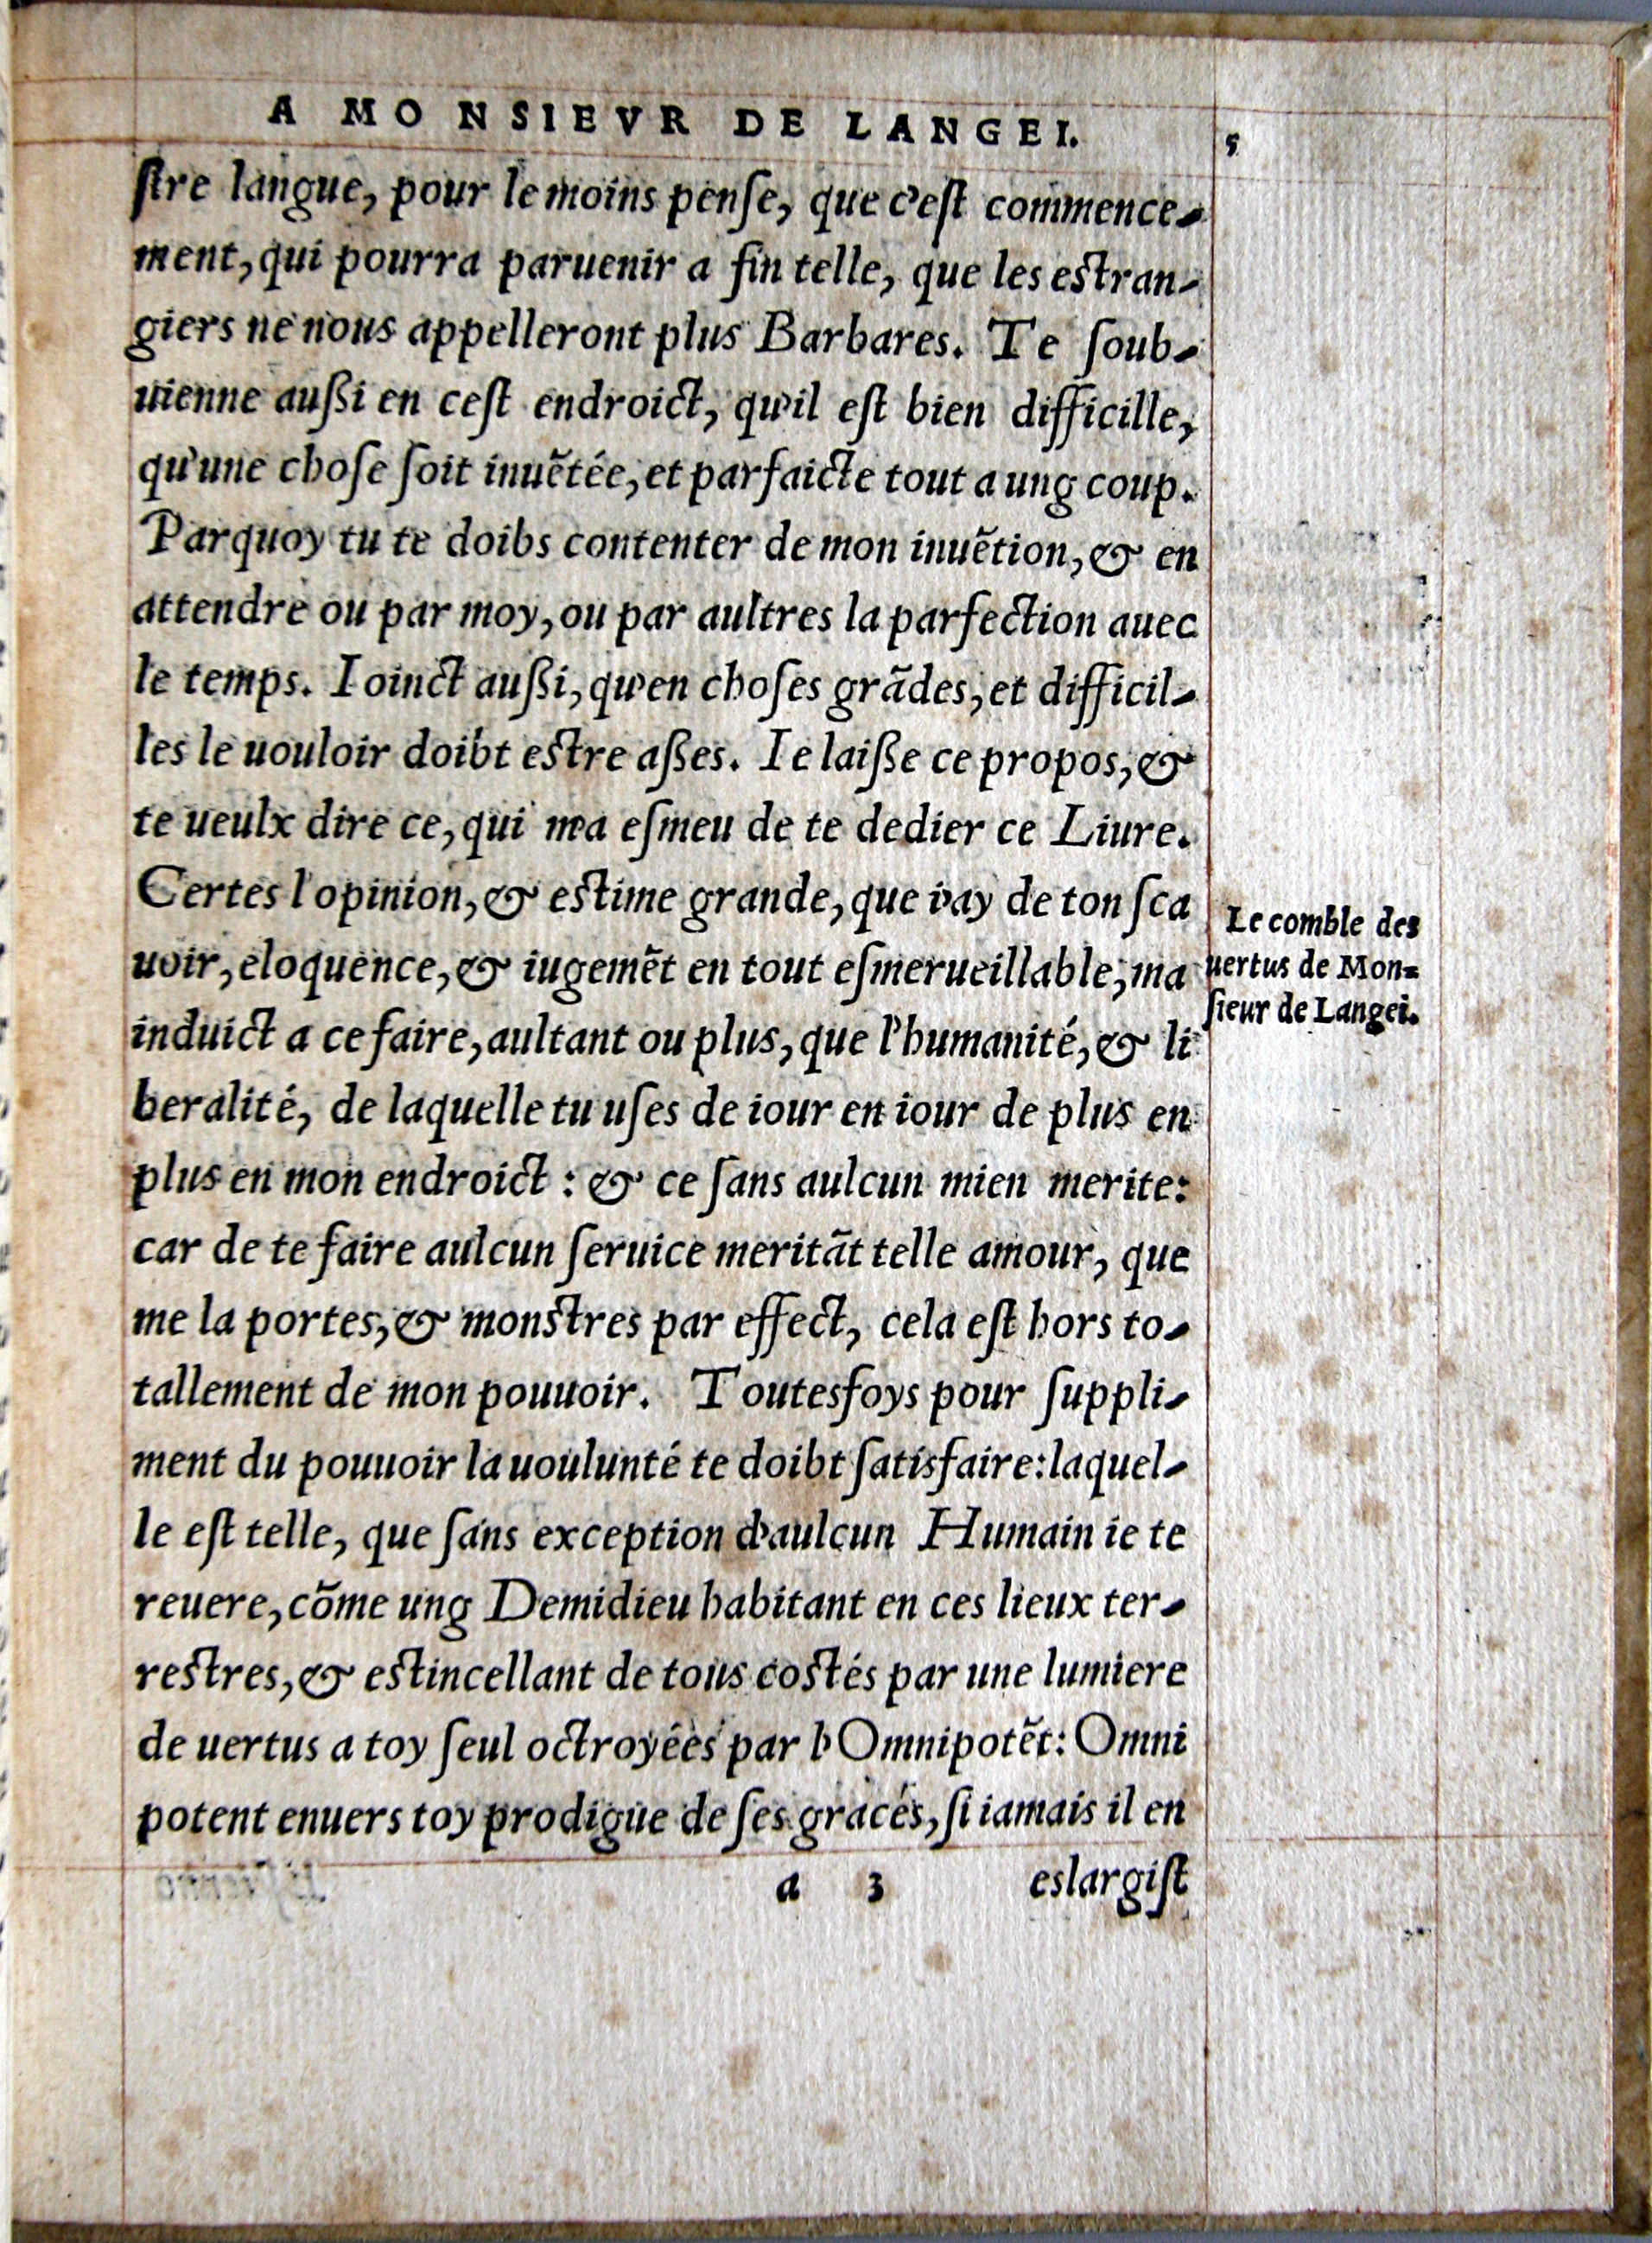 A MONSIEVR DE LANGEI. 5
ſtre langue, pour le moins penſe, que c'eſt commence-
ment, qui pourra paruenir a fin telle, que les estran-
giers ne nous appelleront plus Barbares. Te ſoub-
uienne außi en ceſt endroict, qu'il eſt bien difficille,
qu'une choſe ſoit inuẽtée, et parfaicte tout a ung coup.
Parquoy tu te doibs contenter de mon inuẽtion, & en
attendre ou par moy, ou par aultres la parfection auec
le temps. Ioinct außi, qu'en choſes grãdes, et difficil-
les le uouloir doibt estre aßes. Ie laiße ce propos, &
te ueulx dire ce, qui m'a eſmeu de te dedier ce Liure.
Certes l'opinion, & estime grande, que i'ay de ton ſca
uoir, eloquence, & iugemẽt en tout eſmerueillable, m'a
induict a ce faire, aultant ou plus, que l'humanité, & li
beralité, de laquelle tu uſes de iour en iour de plus en
plus en mon endroict : & ce ſans aulcun mien merite:
car de te faire aulcun ſeruice meritãt telle amour, que
me la portes, & monstres par effect, cela eſt hors to-
tallement de mon pouuoir. Toutesfoys pour ſuppli-
ment du pouuoir la uoulunté te doibt ſatisfaire: laquel-
le eſt telle, que ſans exception d'aulcun Humain ie te
reuere, cõme ung Demidieu habitant en ces lieux ter-
restres, & estincellant de tous costés par une lumiere
de uertus a toy ſeul octroyées par l'Omnipotẽt: Omni
potent enuers toy prodigue de ſes graces, ſi iamais il en
a 3 eslargiſt
Le comble des
uertus de Mon=
ſieur de Langei.